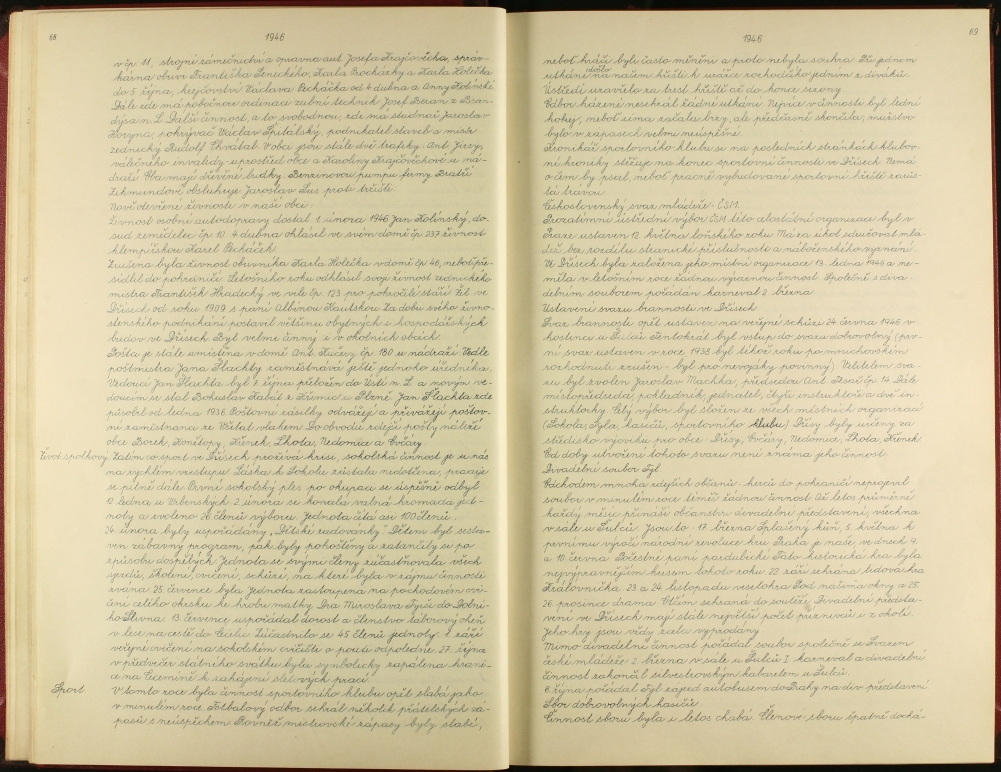 68
1946
v čp. 11, strojní zámečnictví a opravna aut Josefa Krajčovička, správ-
kárna obuvi Františka Seneckého, Karla Procházky a Karla Holečka
do 5. října, krejčovství Václava Pecháčka od 4. dubna a Anny Kolínské
Dále zde má pobočnou ordinaci zubní technik Josef Beran z Bran-
dýsa n. L. Další činnost, a to svobodnou, zde má studnař Jaroslav
Koryna, pokrývač Václav Špitálský, podnikatel staveb a mistr
zednický Rudolf Chvátal. V obci jsou stále dvě trafiky: Ant. Jírsy,
válečného invalidy-uprostřed obce a Karoliny Krajčovičkové u ná-
draží. Oba mají dřevěné budky. Benzinovou pumpu firmy Bratří
Zikmundové obsluhuje Jaroslav Šus proti tržiště.
Nově otevřené živnosti v naší obci.
Živnost osobní autodopravy dostal 1. února 1946 Jan Kolínský, do-
sud zemědělec čp. 10. 4. dubna ohlásil ve svém domě čp. 237 živnost
klempířskou Karel Pecháček
Zrušena byla živnost obuvníka Karla Holečka v domě čp. 46, neboť pře-
sídlil do pohraničí. Letošního roku odhlásil svoji živnost zednického
mistra František Hradecký ve vile čp. 123 pro pokročilé stáří. Žil ve
Dřísech od roku 1909 s paní Albínou Kautskou. Za dobu svého živno-
stenského podnikání postavil většinu obytných i hospodářských
budov ve Dřísech. Byl velmi činný i v okolních obcích.
Pošta je stále umístěna v domě Ant. Kučery čp. 180 u nádraží. Vedle
poštmistra Jana Šlachty zaměstnává ještě jednoho úředníka.
Vedoucí Jan Šlachta byl 1. října přeložen do Ústí n. L. a novým ve-
doucím se stal Bohuslav Kabát z Křimic u Plzně. Jan Šlachta zde
působil od ledna 1936. Poštovní zásilky odvážejí a přivážejí poštov-
ní zaměstnanci ze Všetat vlakem. Do obvodu zdejší pošty náleží
obce Borek, Konětopy, Křenek, Lhota, Nedomice a Ovčáry
Život spolkový. Zatím co sport ve Dřísech prožívá krisi, sokolská činnost je u nás
na rychlém vzestupu. Láska k Sokolu zůstala nedotčena, pracuje
se pilně dále. První sokolský ples po okupaci se úspěšně odbyl
12. ledna u Urbenských. 2. února se konala valná hromada jed-
noty a zvoleno 26 členů výboru. Jednota čítá asi 100 členů.
24. února byly uspořádány „Dětské radovánky". Dětem byl sesta-
ven zábavný program, pak byly pohoštěny a zatančily si po
způsobu dospělých. Jednota se svými členy zúčastňovala všech
srazů, školení, cvičení, schůzí, na které byla v zájmu činnosti
zvána. 25. července byla Jednota zastoupena na pochodovém cvi-
čení celého okresku ke hrobu matky Dra Miroslava Tyrše do Dolní-
ho Slivna. 13. července uspořádal dorost a členstvo táborový oheň
v lese na cestě do Cecilie. Zúčastnilo se 45 členů jednoty. 8. září
veřejné cvičení na sokolském cvičišti o pouti odpoledne. 27. října
v předvečer státního svátku byla symbolicky zapálena hrani-
ce na Cecemíně k zahájení sletových prací.
Sport
V tomto roce byla činnost sportovního klubu opět slabá jako
v minulém roce. Fotbalový odbor sehrál několik přátelských zá-
pasů s neúspěchem. Rovněž mistrovské zápasy byly slabé,
69
1946
neboť hráči byli často měněni a proto nebyla souhra. Při jednom
utkání došlo na našem hřišti k urážce rozhodčího jedním z diváků.
Ústředí uzavřelo za trest hřiště až do konce sezony.
Odbor házené nesehrál žádné utkání. Nejvíce v činnosti byl lední
hokej, neboť zima začala brzy, ale předčasně skončila, mužstvo
bylo v zápasech velmi neúspěšné.
Kronikář sportovního klubu si na posledních stránkách klubov-
ní kroniky stěžuje na konec sportovní činnosti ve Dřísech. Nemá
o čem by psal, neboť pracně vybudované sportovní hřiště zarůs-
tá trávou.
Československý svaz mládeže - ČSM.
Prozatímní ústřední výbor ČSM této celostátní organisace byl v
Praze ustaven 12. května loňského roku. Má za úkol sdružovat mlá-
dež bez rozdílu stranické příslušnosti a náboženského vyznání.
Ve Dřísech byla založena jeho místní organisace 13. ledna 1946 a ne-
měla v letošním roce žádnou výraznou činnost. Společně s diva-
delním souborem pořádán karneval 2. března.
Ustavení svazu brannosti ve Dřísech
Svaz brannosti opět ustaven na veřejné schůzi 24. června 1946 v
hostinci u Šulců. Tentokrát byl vstup do svazu dobrovolný (prv-
ní svaz ustaven v roce 1938 byl téhož roku po mnichovském
rozhodnutí zrušen - byl pro nevojáky povinný). Velitelem sva-
zu byl zvolen Jaroslav Machka, předsedou Ant. Psař čp. 14. Dále
místopředseda, pokladník, jednatel, čtyři instruktoři a dvě in-
struktorky. Celý výbor byl složen ze všech místních organisací
(Sokola, Tyla, hasičů, sportovního klubu). Dřísy byly určeny za
středisko výcviku pro obce: Dřísy, Ovčáry, Nedomice, Lhota, Křenek.
Od doby utvoření tohoto svazu není známa jeho činnost.
Divadelní soubor Tyl.
Odchodem mnoha zdejších občanů - herců do pohraničí neprojevil
soubor v minulém roce téměř žádnou činnost. Až letos průměrně
každý měsíc přináší občanstvu divadelní představení, všechna
v sále u Šulců. Jsou to: 17. března Splašený kůň, 5. května k
prvnímu výročí národní revoluce hru Praha je naše, ve dnech 9.
a 10. června Počestné paní pardubické. Tato historická hra byla
nejvýpravnějším kusem tohoto roku. 22. září sehrána lidová hra
Královnička. 23. a 24. listopadu veselohra Pod našima okny a 25.
26. prosince drama Vlčím sehraná do soutěže. Divadelní předsta-
vení ve Dřísech mají stále největší počet příznivců i z okolí.
Jeho hry jsou vždy zcela vyprodány.
Mimo divadelní činnost pořádal soubor společně se Svazem
české mládeže 2. března v sále u Šulců I. karneval a divadelní
činnost zakončil silvestrovským kabaretem u Šulců.
6. října pořádal Tyl zájezd autobusem do Prahy na div. představení
Sbor dobrovolných hasičů
Činnost sboru byla i letos chabá. Členové sboru špatně dochá-